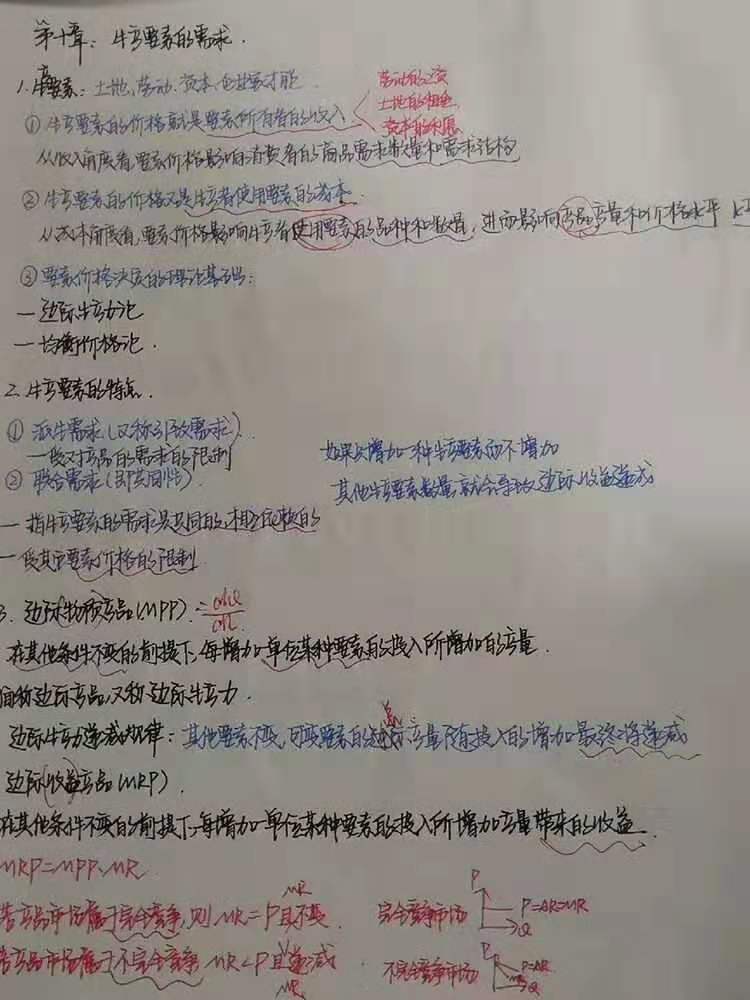 第十章：生产要素的需求.
1. 生产要素：土地、劳动、资本、企业家才能
劳动的工资
土地的租金
资本的利息
① 生产要素的价格就是要素所有者的收入
从收入角度看,要素价格影响消费者的商品需求数量和需求结构
② 生产要素的价格又是生产者使用要素的成本.
从成本角度看,要素价格影响生产者使用要素的品种和数量, 进而影响产品产量和价格水平
③ 要素价格决定的理论基础：
— 边际生产力论
— 均衡价格论.
2. 生产要素的特点.
① 派生需求(又称引致需求).
— 受对产品的需求的限制
② 联合需求(即共同性).
如果只增加一种生产要素而不增加
其他生产要素数量,就会导致边际收益递减
— 指生产要素的需求是共同的,相互依赖的
— 受其它要素价格的限制
3. 边际物质产品(MPP).
在其他条件不变的前提下,每增加一单位某种要素的投入所增加的产量.
简称边际产品,又称边际生产力
边际生产力递减规律：其他要素不变,可变要素的边际产量随投入的增加最终将递减
边际收益产品(MRP).
在其他条件不变的前提下,每增加一单位某种要素的投入所增加产量带来的收益.
MRP=MPP·MR
若产品市场属于完全竞争,则MR=P且MR不变. 完全竞争市场 P P=AR=MR Q
若产品市场属于不完全竞争 MR<P且MR递减. 不完全竞争市场 P P=AR MR Q